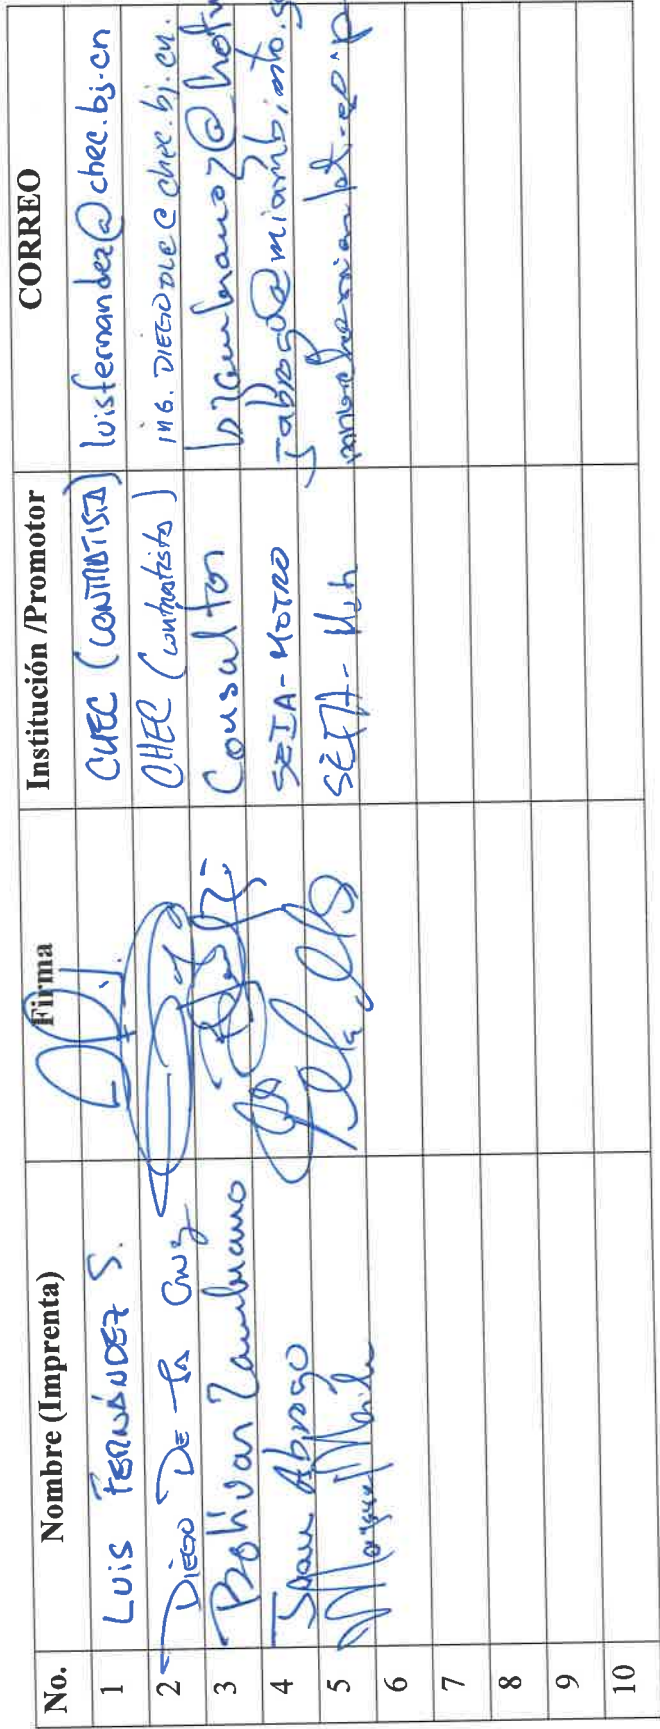 No. Nombre (Imprenta) Firma Institución /Promotor CORREO
1 LUIS FERNÁNDEZ S. CHEC (CONTRATISTA) luisfernandez@chec.bj.cn
2 DIEGO DE la Cruz CHEC (contratista) ING. DIEGODLC@chec.bj.cn.
3 Bolívar Zambrano Consultor bzambrano7@hotm
4 Abrego SEIA-
5 Miguel SEIA-
6
7
8
9
10